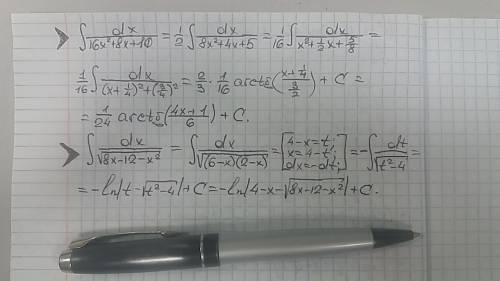 ∫ dx/(16x²+8x+10) = 1/2 ∫ dx/(8x²+4x+5) = 1/16 ∫ dx/(x²+1/2x+5/8) =
1/16 ∫ dx/((x+1/4)²+(3/4)²) = 2/3 · 1/16 arctg((x+1/4)/(3/2)) + C =
= 1/24 arctg((4x+1)/6) + C.
∫ dx/√(8x-12-x²) = ∫ dx/√((6-x)(2-x)) = [4-x=t; x=4-t; dx=-dt;] = -∫ dt/√(t²-4) =
= -ln|t-√(t²-4)|+C = -ln|4-x-√(8x-12-x²)|+C.